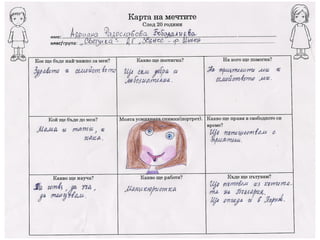 Карта на мечтите
След 20 години
име: Адриана Радославова
клас/група: ДГ
Кое ще бъде най-важно за мен?
Здравето и семейството
Какво ще постигна?
Ще съм добра и
любознателна.
На кого ще помогна?
На приятелите ми и
семейството ми.
Кой ще бъде до мен?
Мама и татко, и
кака.
Моята усмихната снимка(портрет).
Какво ще правя в свободното си
време?
Ще пътешествам с
приятели.
Какво ще науча?
Да готвя, да
да танцувам.
Какво ще работя?
Маникюристка
Къде ще пътувам?
Ще пътувам из
на България.
Ще отида и в Париж.